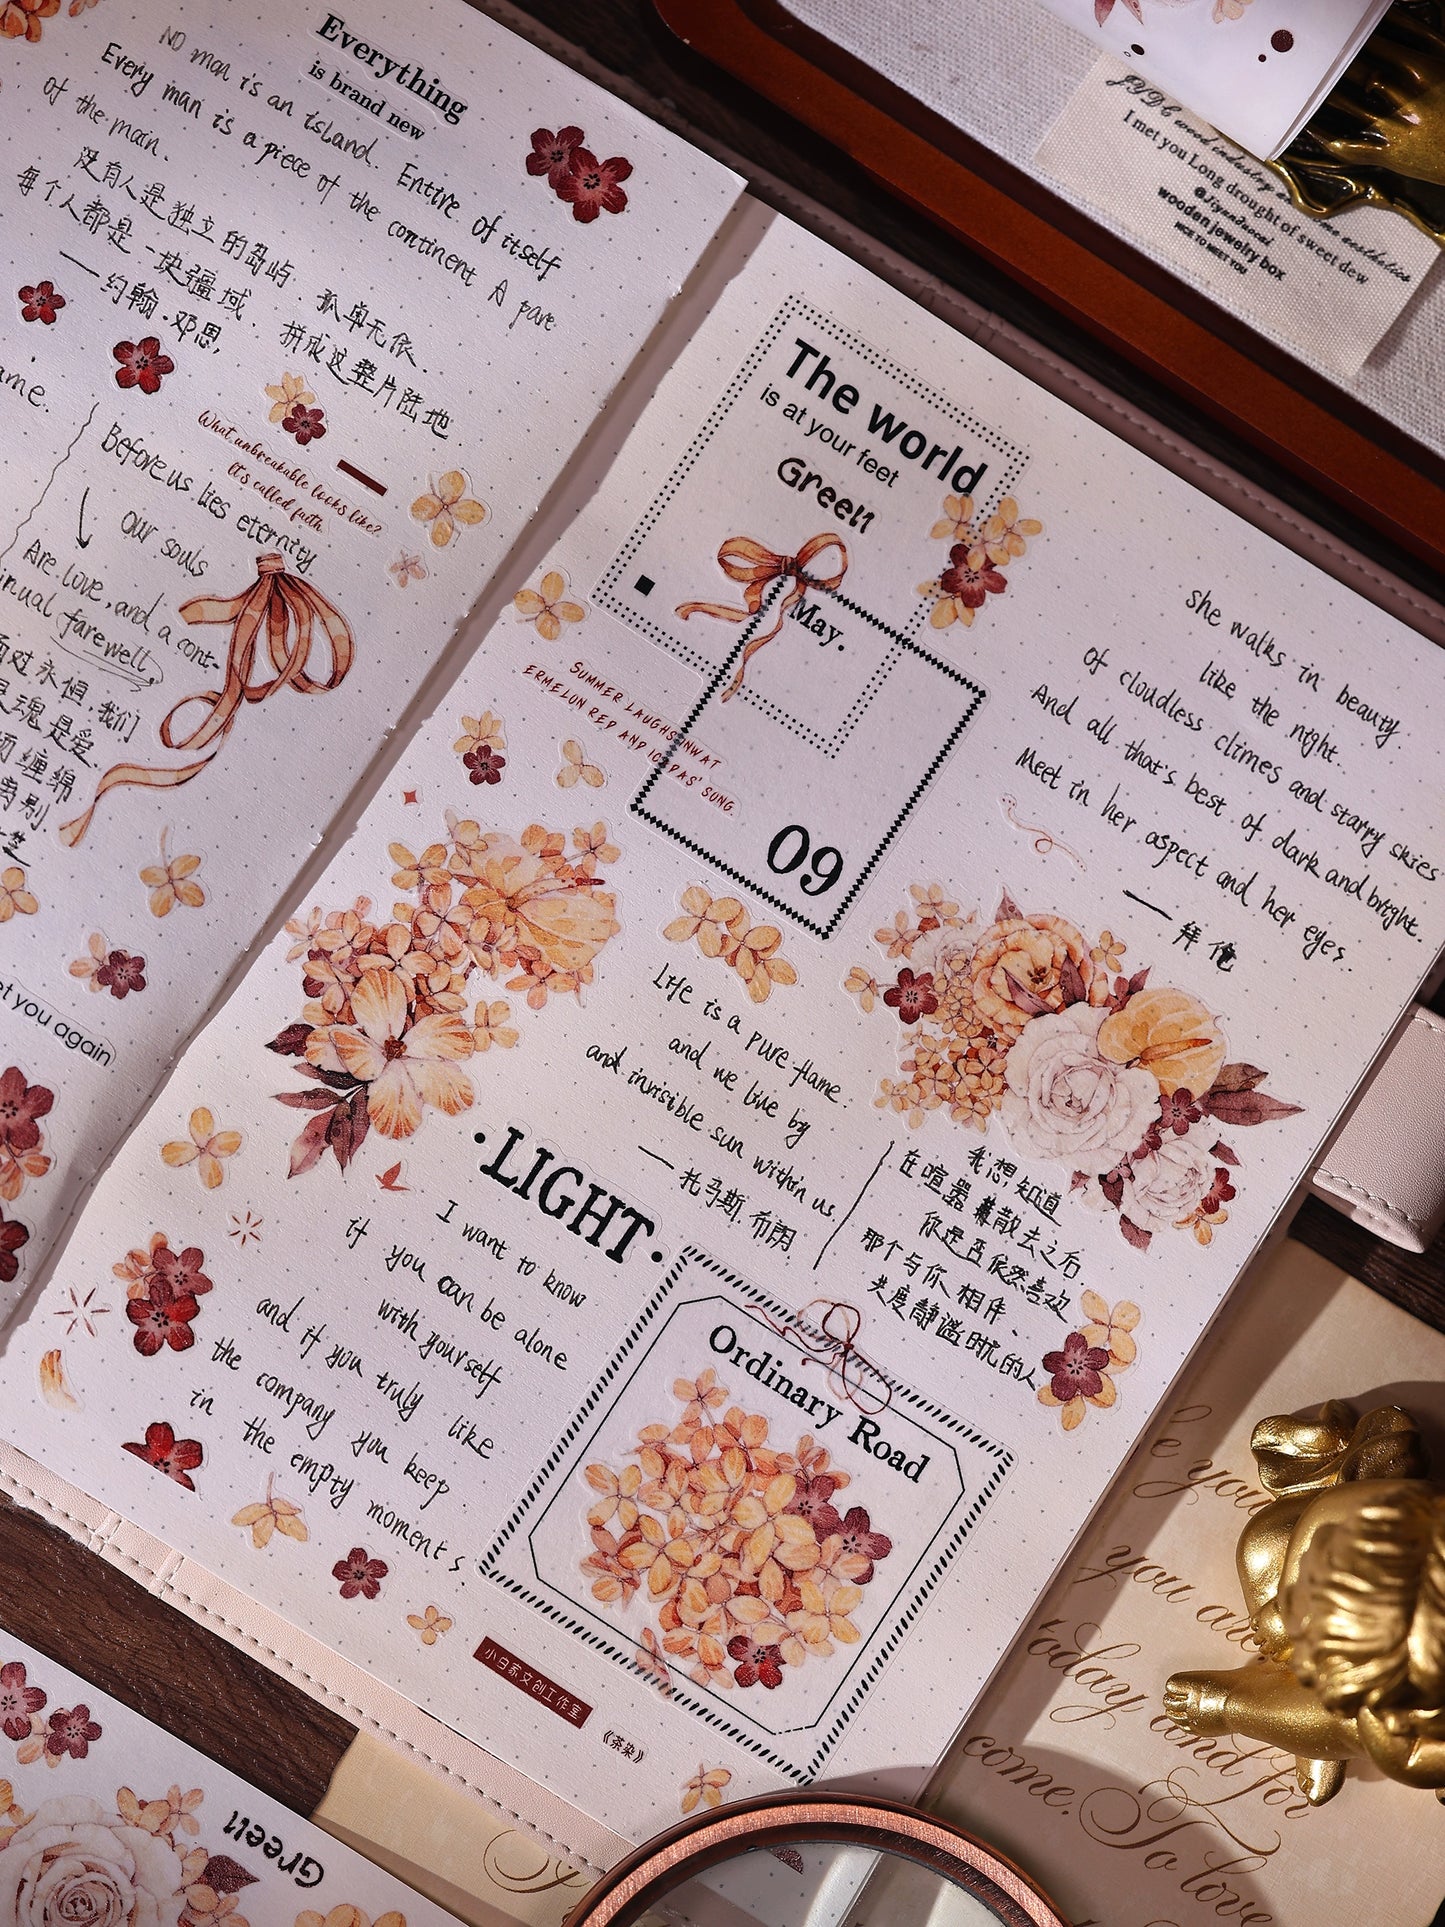 Everything
is brand new
No man is an island. Entire of itself
Every man is a piece of the continent A pare
of the main.
没有人是独立的岛屿. 孤单无依.
每个人都是一块疆域. 拼成这整片陆地.
——约翰·邓恩,
ame.
What unbreakable looks like?
It's called faith.
Before us lies eternity
our souls
Are love, and a cont-
inual farewell,
面对永恒,我们
灵魂是爱.
缠绵
离别.
et you again
The world
is at your feet
Green
May.
09
SUMMER LAUGHS
ERMELON RED AND
SUNG.
she walks in beauty.
like the night.
Of cloudless climes and starry skies
And all that's best of dark and bright.
Meet in her aspect and her eyes.
——拜伦
Life is a pure flame.
and we live by
and invisible sun within us.
——托马斯.布朗
我想知道
在喧嚣 散去之后.
你是否依然喜欢
那个与你相伴.
共度静谧时光的人
·LIGHT·
I want to know
if you can be alone
with yourself
and if you truly like
the company you keep.
in the empty moments.
Ordinary Road
小日家文创工作室
《茶染》
Green
JYDC wood industry
I met you Long drought of sweet dew
@Jiyanducai
wooden jewelry box
NICE TO MEET YOU
be you
you are
today and for
come. To love